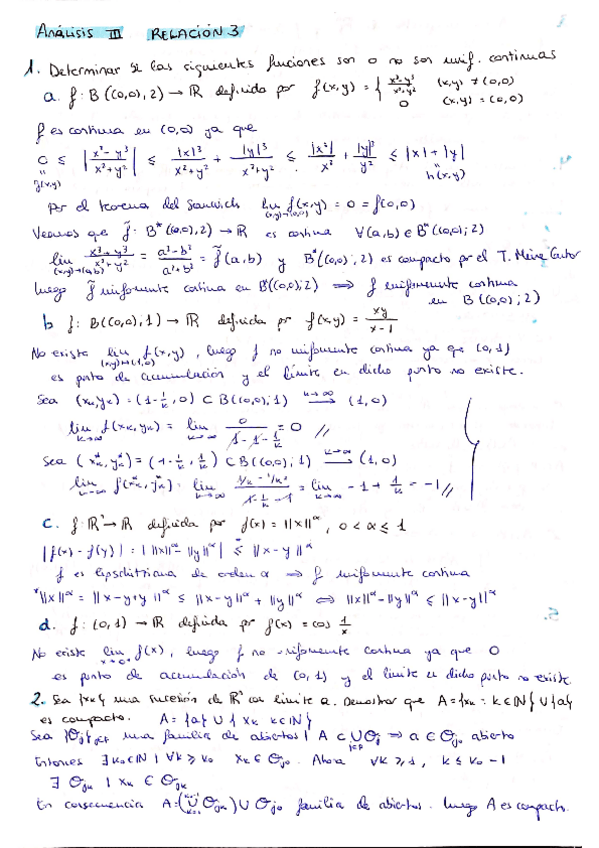 Análisis III RELACIÓN 3
1. Determinar si las siguientes funciones son o no son unif. continuas
a. f: B((0,0),2) → ℝ definida por f(x,y) = { (x³-y³)/(x²+y²) (x,y) ≠ (0,0)
0 (x,y) = (0,0)
f es continua en (0,0) ya que
0 ≤ |(x³-y³)/(x²+y²)| ≤ |x|³/(x²+y²) + |y|³/(x²+y²) ≤ |x³|/x² + |y|³/y² ≤ |x| + |y|
g(x,y) h(x,y)
Por el teorema del Sandwich lim (x,y)→(0,0) f(x,y) = 0 = f(0,0)
Veamos que f̃: B*((0,0),2) → ℝ es continua ∀(a,b) ∈ B*((0,0);2)
lim (x,y)→(a,b) = f̃(a,b) y B*((0,0),2) es compacto por el T.
luego f̃ uniformente continua en B*((0,0);2) ⟹ f uniformente continua
en B((0,0);2)
b f: B((0,0);1) → ℝ definida por f(x,y) = xy/(x-1)
No existe lim (x,y)→(1,0) f(x,y), luego f no uniformente continua ya que (0,1)
es punto de acumulación y el límite en dicho punto no existe.
Sea (xₖ,yₖ) = (1-1/k, 0) ⊂ B((0,0);1) k→∞ → (1,0)
lim k→∞ f(xₖ,yₖ) = lim k→∞ 0/(1-1-1/k) = 0 //
Sea (xₖ*,yₖ*) = (1-1/k, 1/k) ⊂ B((0,0);1) k→∞ → (1,0)
lim k→∞ f(xₖ*,yₖ*) = lim k→∞ (1/k - 1/k²)/(1-1/k-1) = lim k→∞ -1 + 1/k = -1 //
c. f: ℝⁿ → ℝ definida por f(x) = ||x||^α, 0 < α ≤ 1
|f(x) - f(y)| = | ||x||^α - ||y||^α | ≤* ||x-y||^α
f es lipschitziana de orden α ⟹ f uniformente continua
*||x||^α = ||x-y+y||^α ≤ ||x-y||^α + ||y||^α ⟺ ||x||^α - ||y||^α ≤ ||x-y||^α
d. f: (0,1) → ℝ definida por f(x) = cos 1/x
No existe lim x→0⁺ f(x), luego f no uniformente continua ya que 0
es punto de acumulación de (0,1) y el límite en dicho punto no existe.
2. Sea {xₖ} una sucesión de con límite a. Demostrar que A = {xₖ : k∈ℕ} ∪ {a}
es compacto. A = {a} ∪ {xₖ k∈ℕ}
Sea una familia de abiertos | A ⊂ ∪Oj ⟹ a ∈ Oj₀ abierto
Entonces ∃ k₀∈ℕ | ∀k ≥ k₀ xₖ ∈ Oj₀. Ahora ∀k ≥ 1, k ≤ k₀-1
∃ Ojₖ | xₖ ∈ Ojₖ
En consecuencia A = (∪ Ojₖ) ∪ Oj₀ familia de abiertos. luego A es compacto.